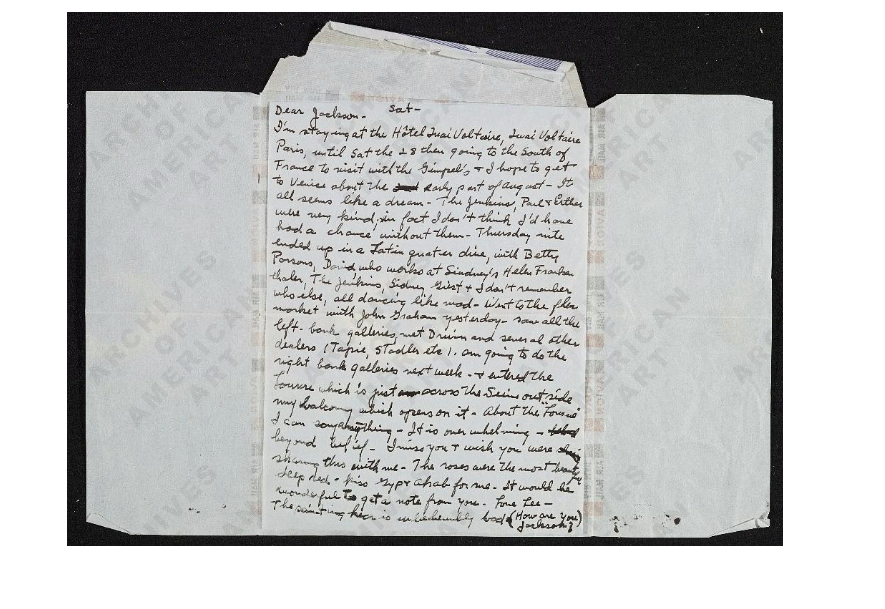 Dear Jackson - Sat -
I'm staying at the Hôtel Quai Voltaire, Quai Voltaire
Paris, until Sat the 28 then going to the South of
France to visit with the Gimpel's + I hope to get
to Venice about the early part of august - It
all seems like a dream - The Jenkins, Paul + Esther
were very kind, in fact I don't think I'd have
had a chance without them - Thursday nite
ended up in a Latin quarter dive, with Betty
Parsons, David, who works at Sindney's Helen Franken
thaler, The Jenkins, Sidney Giest + I don't remember
who else, all dancing like mad - Went to the flea
market with John Graham yesterday - saw all the
left - bank galleries, met Druin and several other
dealers (Tapie, Stadler etc). am going to do the
right bank galleries next week - + entered the
Louvre which is just across the Seine outside
my balcony which opens on it - About the "Louvre"
I can say anything - It is over whelming -
beyond belief - I miss you + wish you were
sharing this with me - The roses were the most beautiful
deep red - kiss Gyp + Ahab for me - It would be
wonderful to get a note from you - Love Lee -
The painting here is unbelievably bad (How are you
Jackson?)
ARCHIVES
OF
AMERICAN
ART